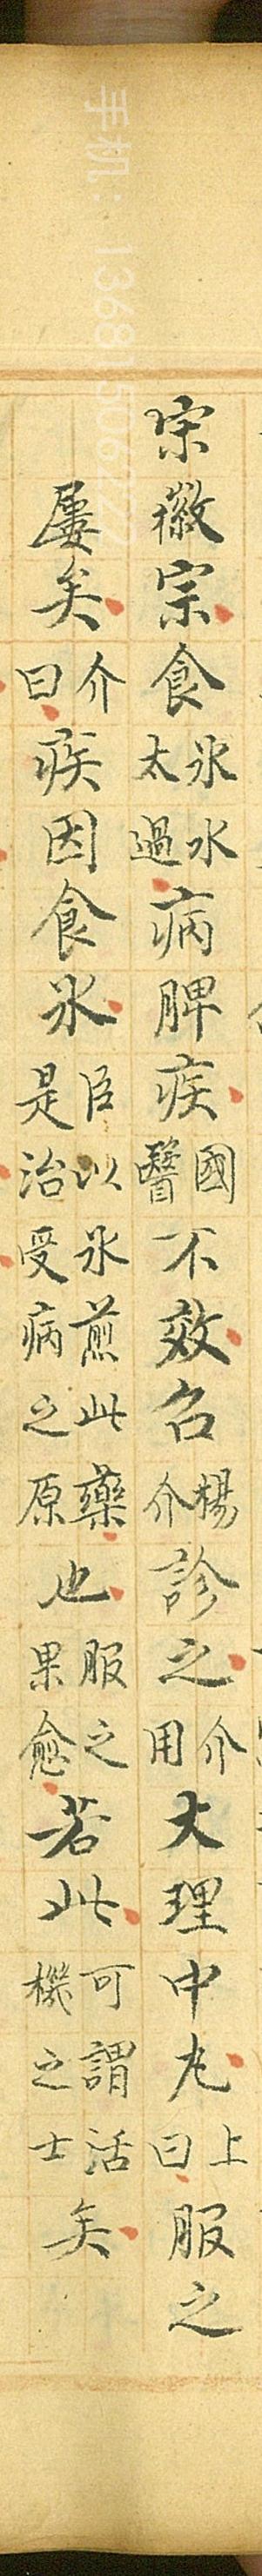 宗徽宗食氷水太過病脾疾國醫不效召楊介診之介用大理中丸上曰服之
屢矣介曰疾因食氷臣以氷煎此藥是治受病之原也服之果愈若此可謂活機之士矣
手机：